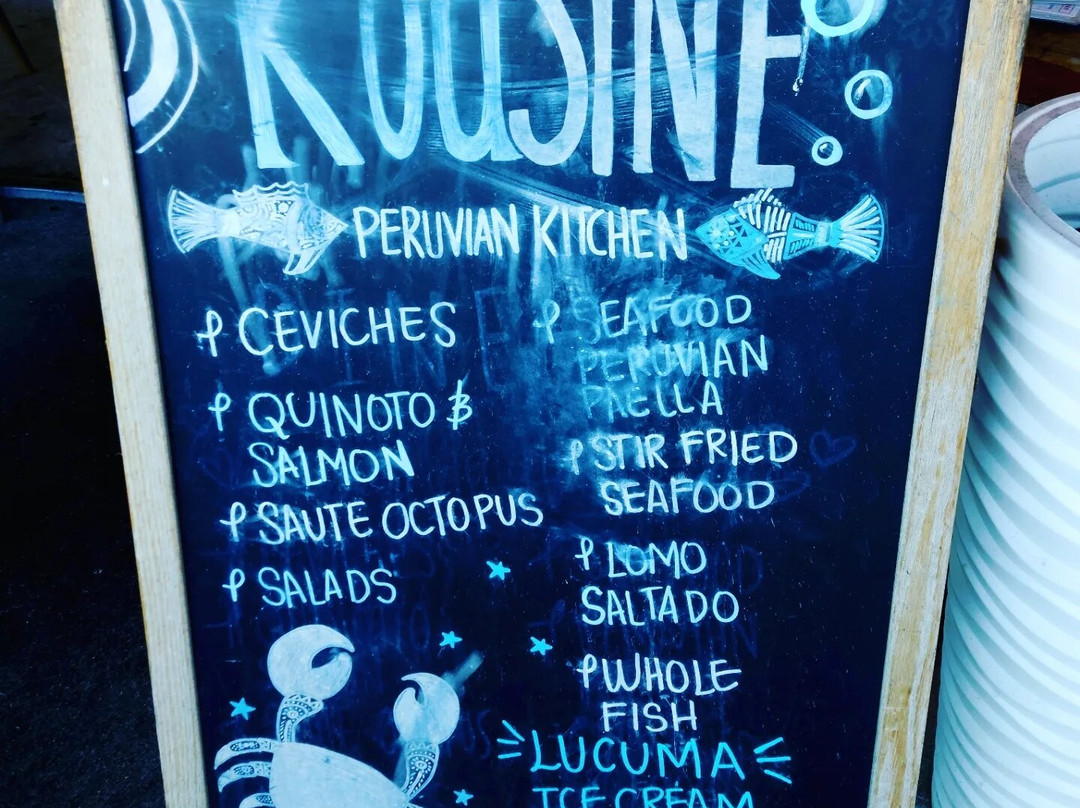 KUUSINE
PERUVIAN KITCHEN
CEVICHES
QUINOTO &
SALMON
SAUTE OCTOPUS
SALADS
SEAFOOD
PERUVIAN
PAELLA
STIR FRIED
SEAFOOD
LOMO
SALTADO
WHOLE
FISH
LUCUMA
ICE CREAM